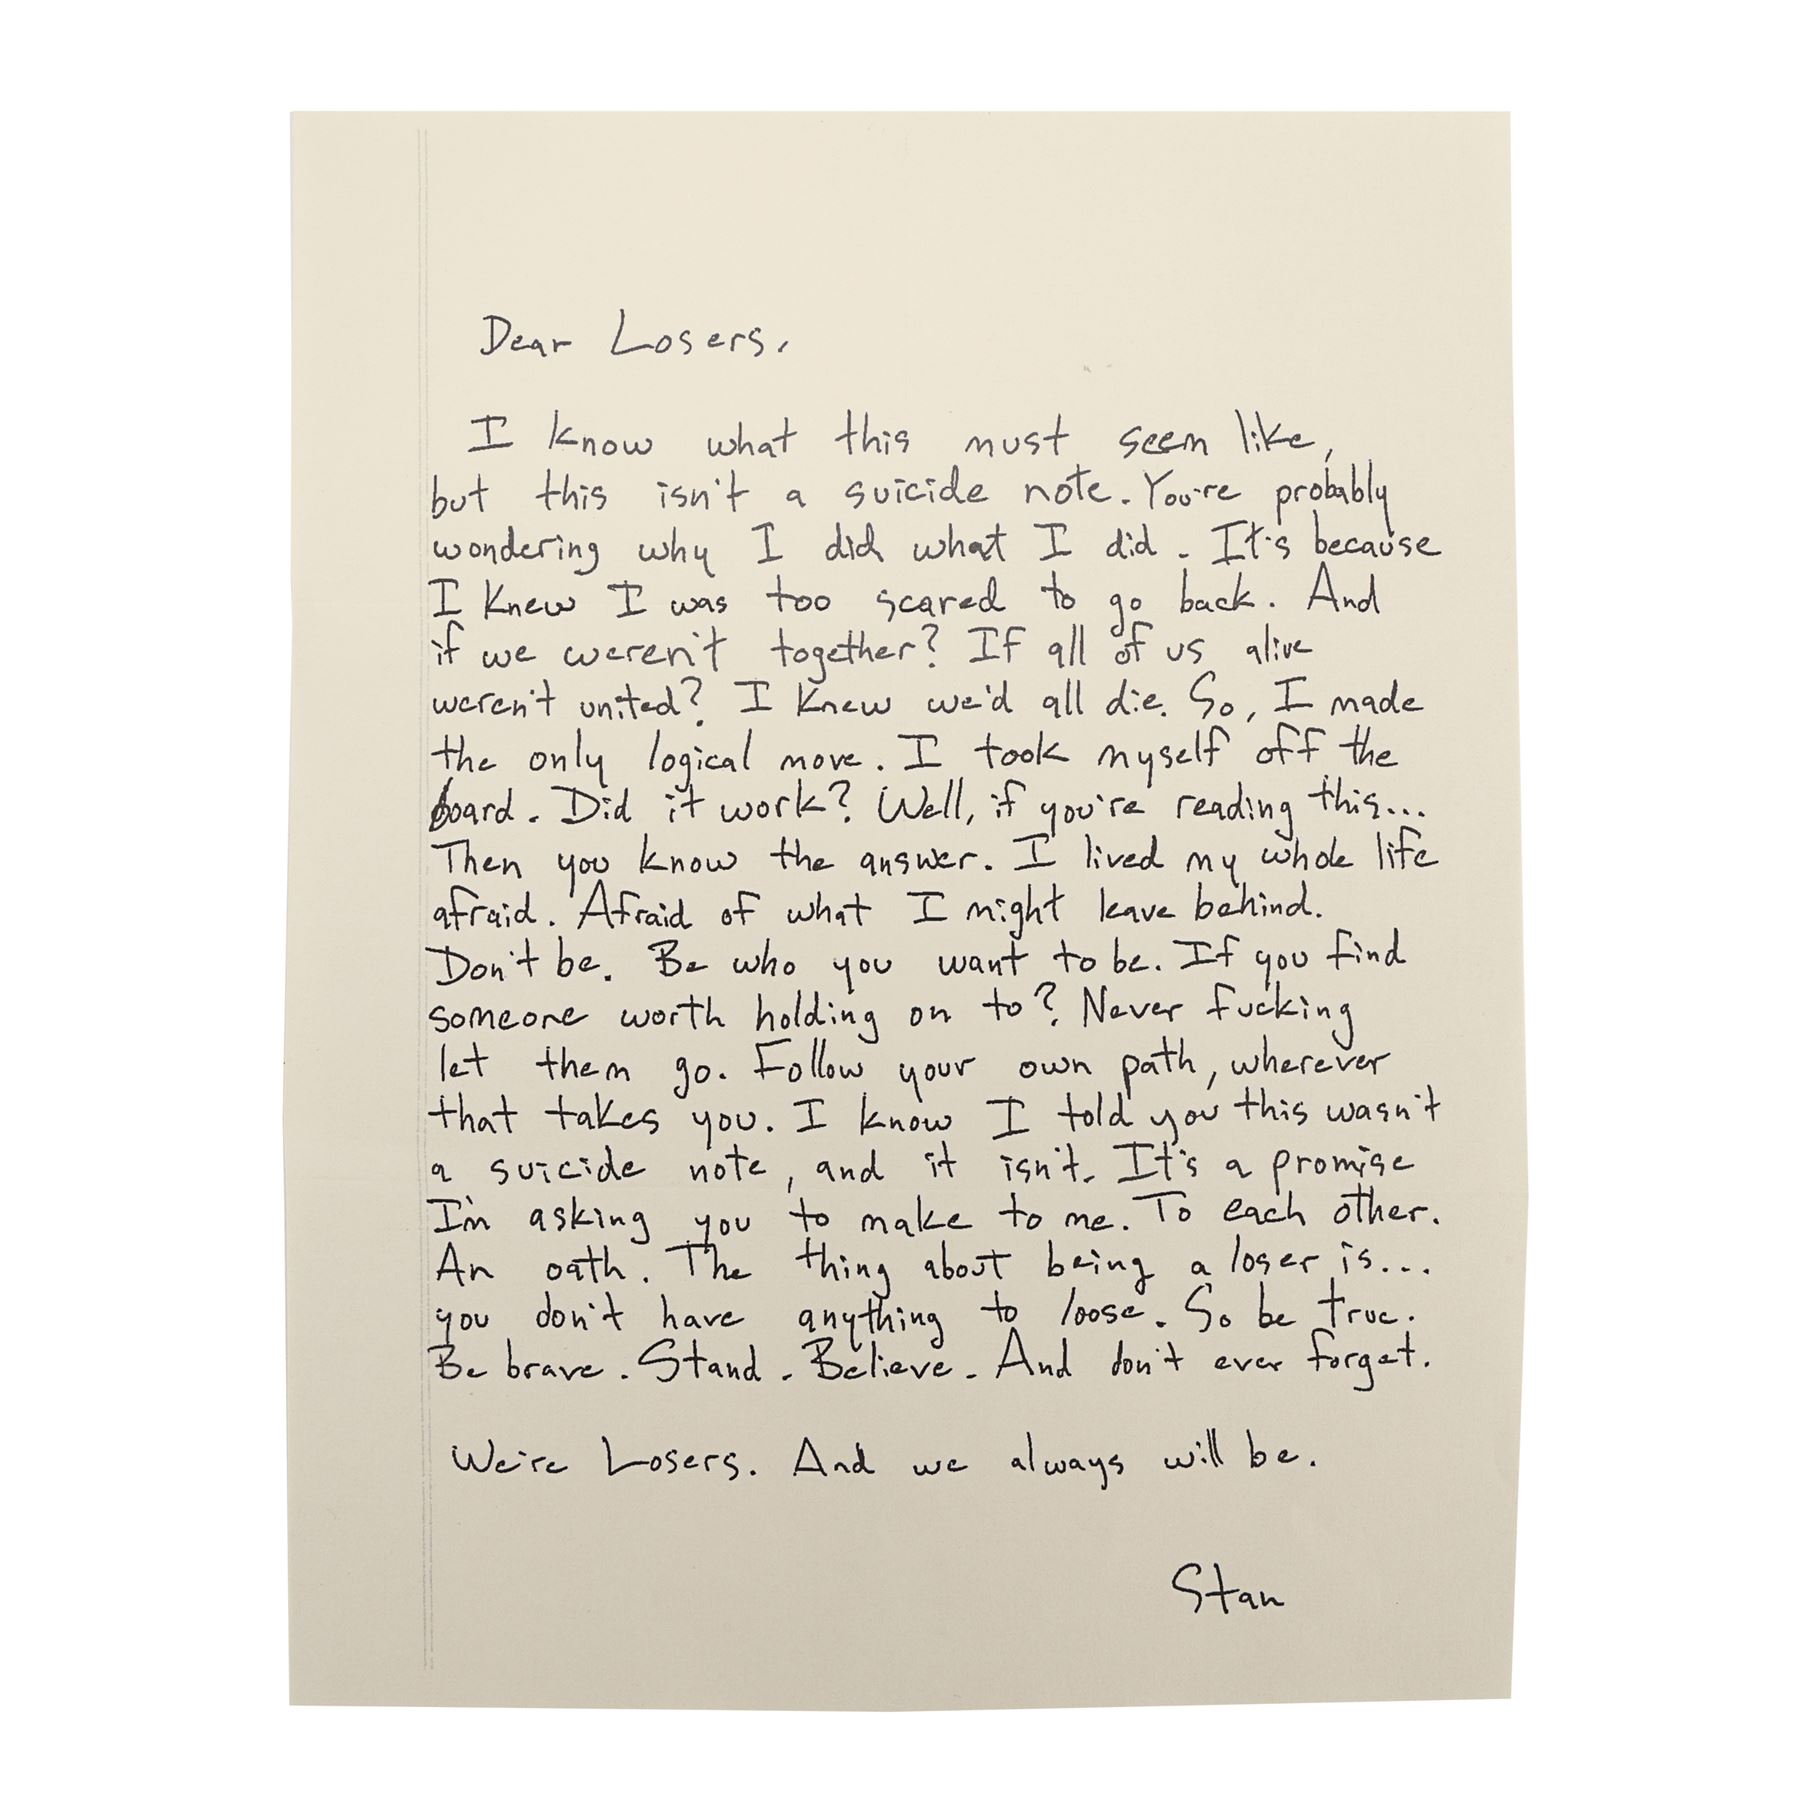 Dear Losers,
I know what this must seem like,
but this isn't a suicide note. You're probably
wondering why I did what I did. It's because
I knew I was too scared to go back. And
if we weren't together? If all of us alive
weren't united? I knew we'd all die. So, I made
the only logical move. I took myself off the
board. Did it work? Well, if you're reading this...
Then you know the answer. I lived my whole life
afraid. Afraid of what I might leave behind.
Don't be. Be who you want to be. If you find
someone worth holding on to? Never fucking
let them go. Follow your own path, wherever
that takes you. I know I told you this wasn't
a suicide note, and it isn't. It's a promise
I'm asking you to make to me. To each other.
An oath. The thing about being a loser is...
you don't have anything to loose. So be true.
Be brave. Stand. Believe. And don't ever forget.
We're Losers. And we always will be.
Stan